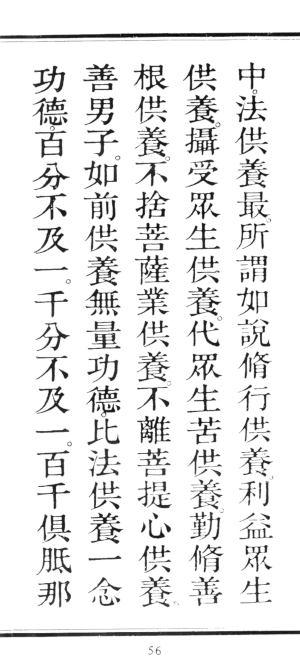 中。法供養最。所謂如說脩行供養。利益眾生
供養。攝受眾生供養。代眾生苦供養。勤脩善
根供養。不捨菩薩業供養。不離菩提心供養。
善男子。如前供養無量功德。比法供養一念
功德。百分不及一。千分不及一。百千俱胝那
56